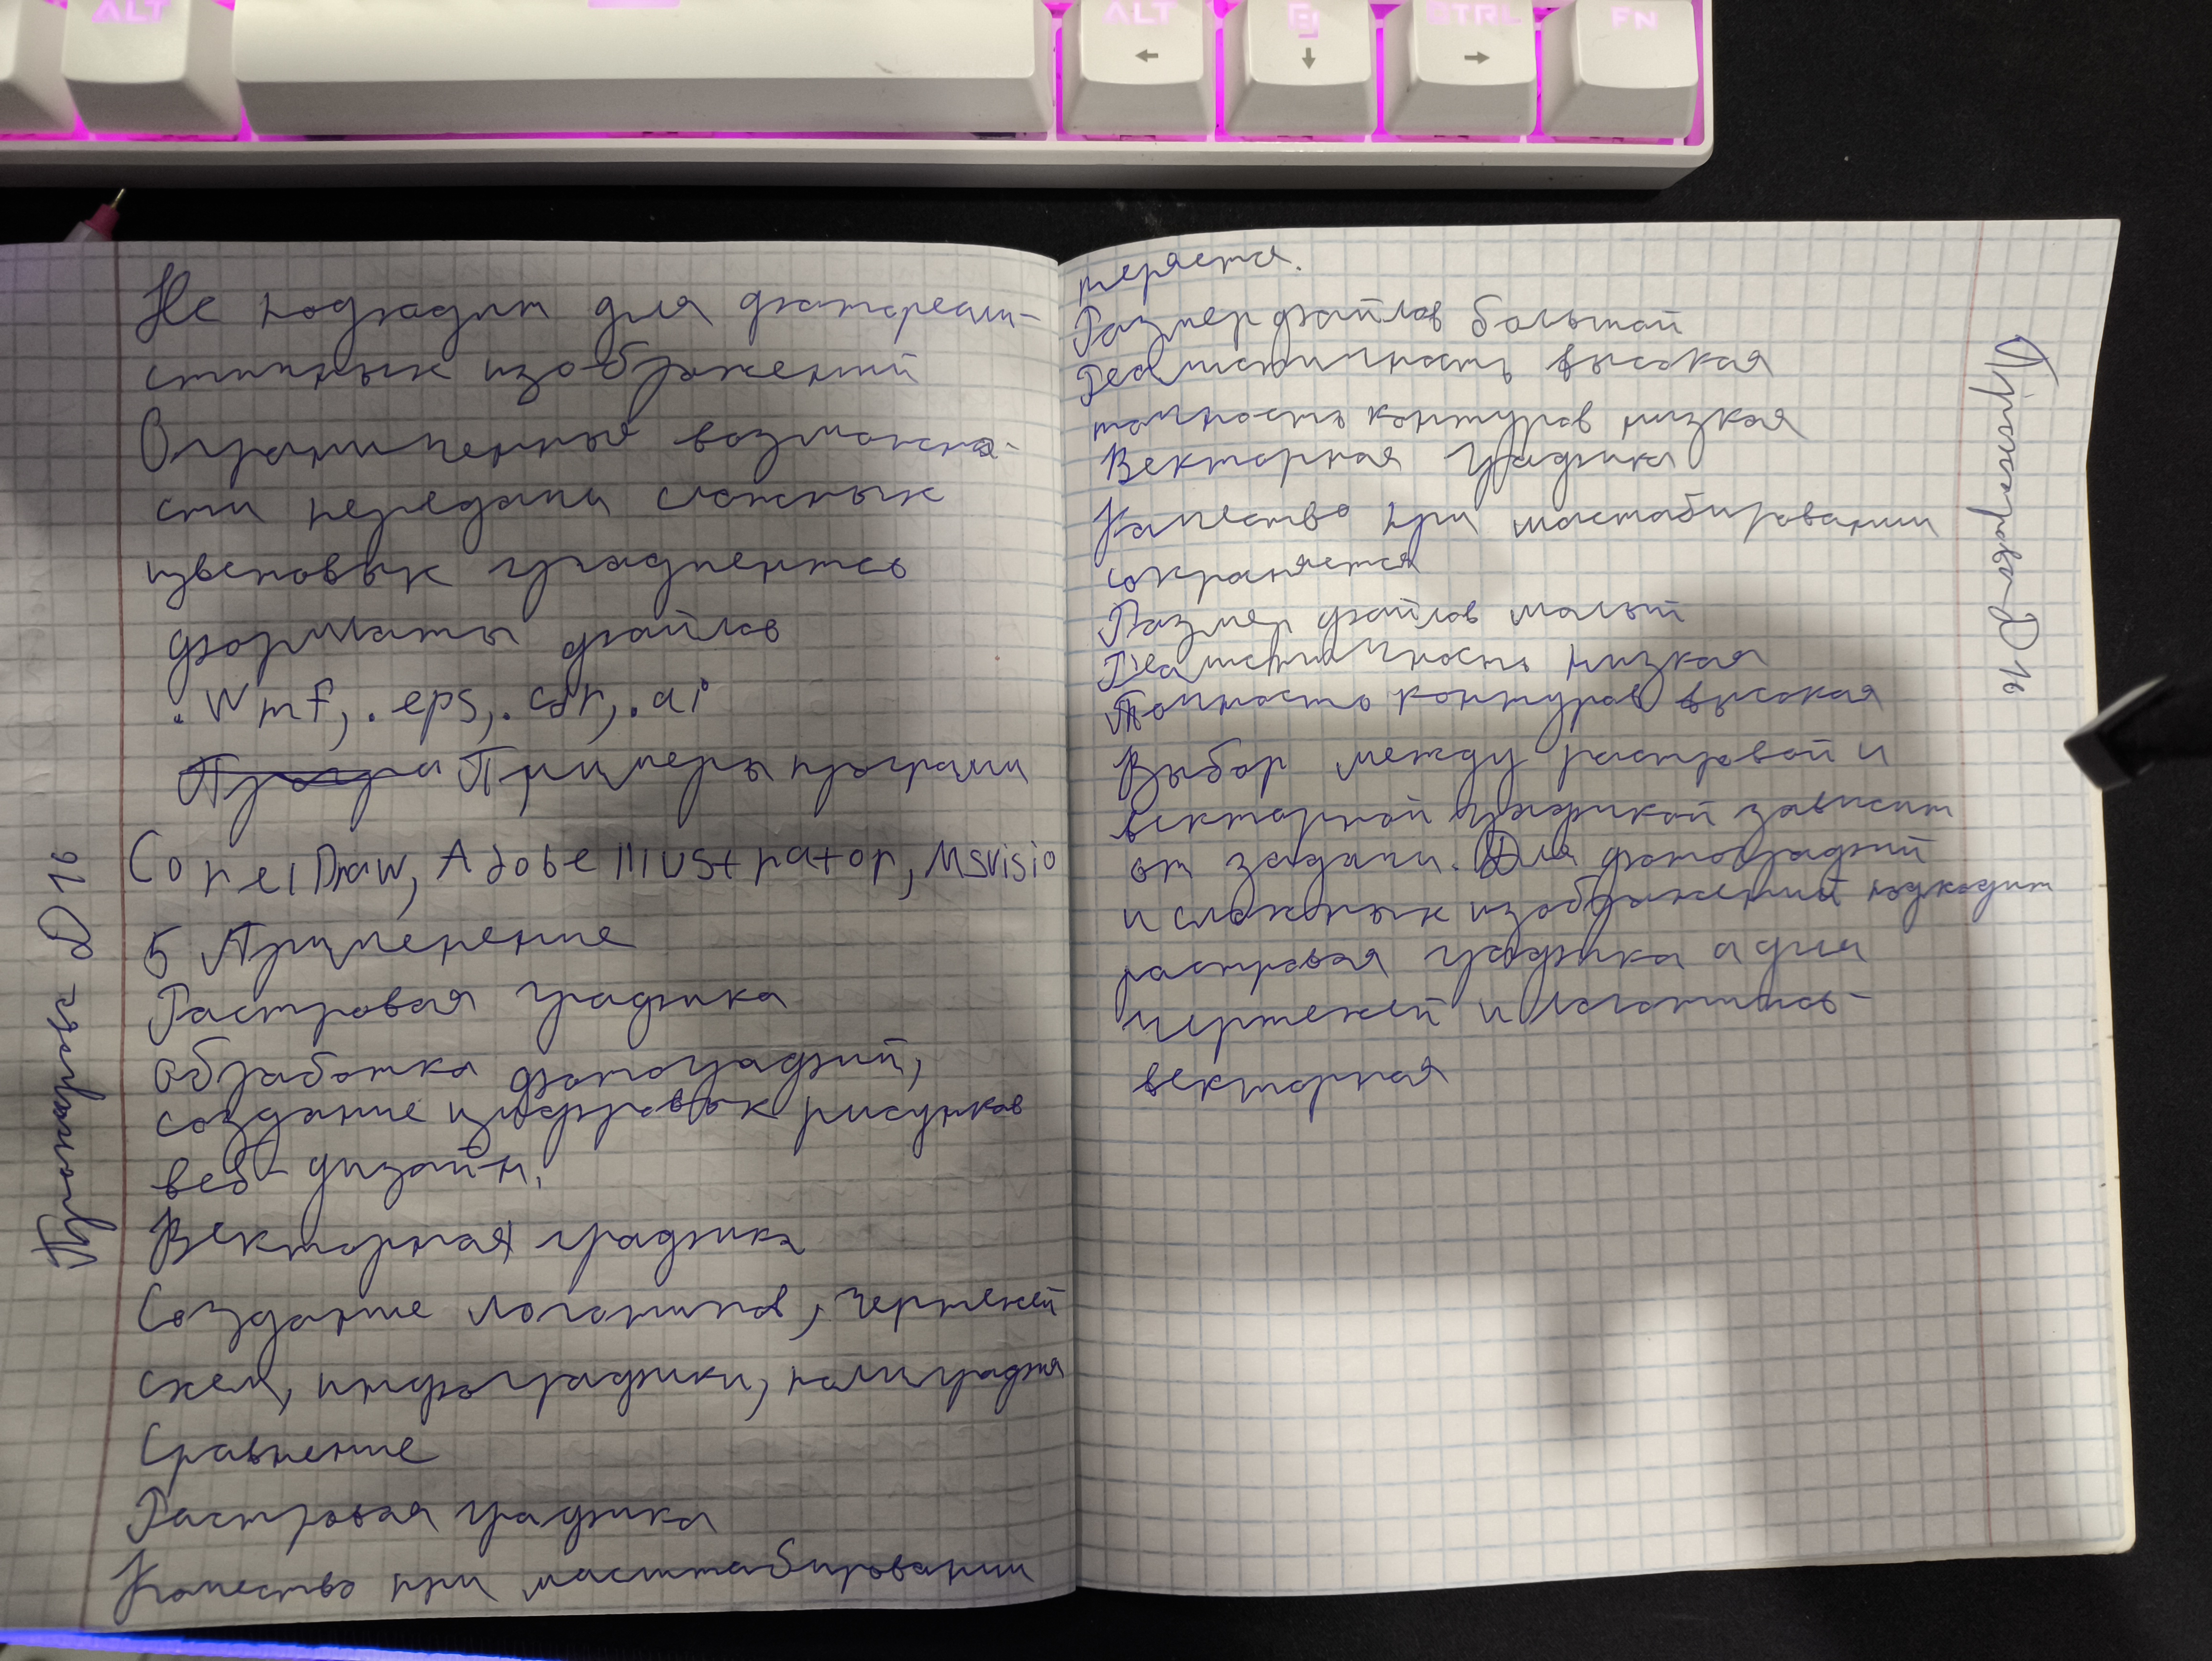 ALT
ALT
CTRL
FN
Не подходит для фотореали-
стичных изображений
Ограниченные возможно-
сти передачи сложных
цветовых градиентов
форматы файлов
.wmf, .eps, .cdr, .ai
Примеры программ
CorelDraw, Adobe Illustrator, Msvisio
5 Применение
Растровая графика
обработка фотографий,
создание цифровых рисунков
веб-дизайн.
Векторная графика
Создание логотипов, чертежей
схем, инфографики, полиграфия
Сравнение
Растровая графика
Качество при масштабировании
теряется.
Размер файлов большой
Реалистичность высокая
точность контуров низкая
Векторная графика
Качество при масштабировании
сохраняется
Размер файлов малый
Реалистичность низкая
Точность контуров высокая
Выбор между растровой и
векторной графикой зависит
от задачи. Для фотографий
и сложных изображений подходит
растровая графика а для
чертежей и логотипов-
векторная
Д 16